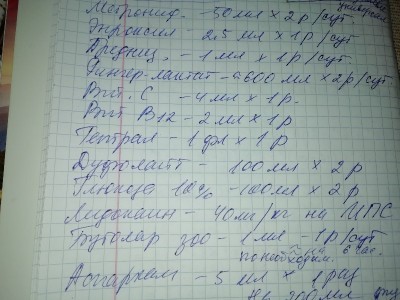 Метронид. - 50 мл х 2 р/сут
Энроксил - 2.5 мл х 1 р/сут
Предниз. - 1 мл х 1 р/сут
Рингер-лактат - 600 мл х 2 р/сут
Вит. С - 4 мл х 1 р.
Вит В12 - 2 мл х 1 р
Гептрал - 1 фл х 1 р
Дуфолайт - 100 мл х 2 р
Глюкоза 10% - 100 мл х 2 р
Лидокаин - 40 мг/кг на ИПС
Бутолар зоо - 1 мл - 1 р/сут
по необходим.
Аспаркам - 5 мл х 1 раз
на 200 мл